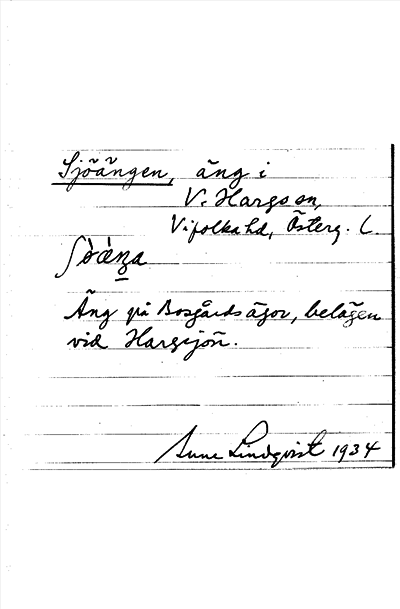 Sjöängen, äng i
V. Hargs sn,
Vifolka hd, Österg. l.
ʃö̀äŋa
Äng på Bosgårds ägor, belägen
vid Hargsjön.
Sune Lindqvist 1934